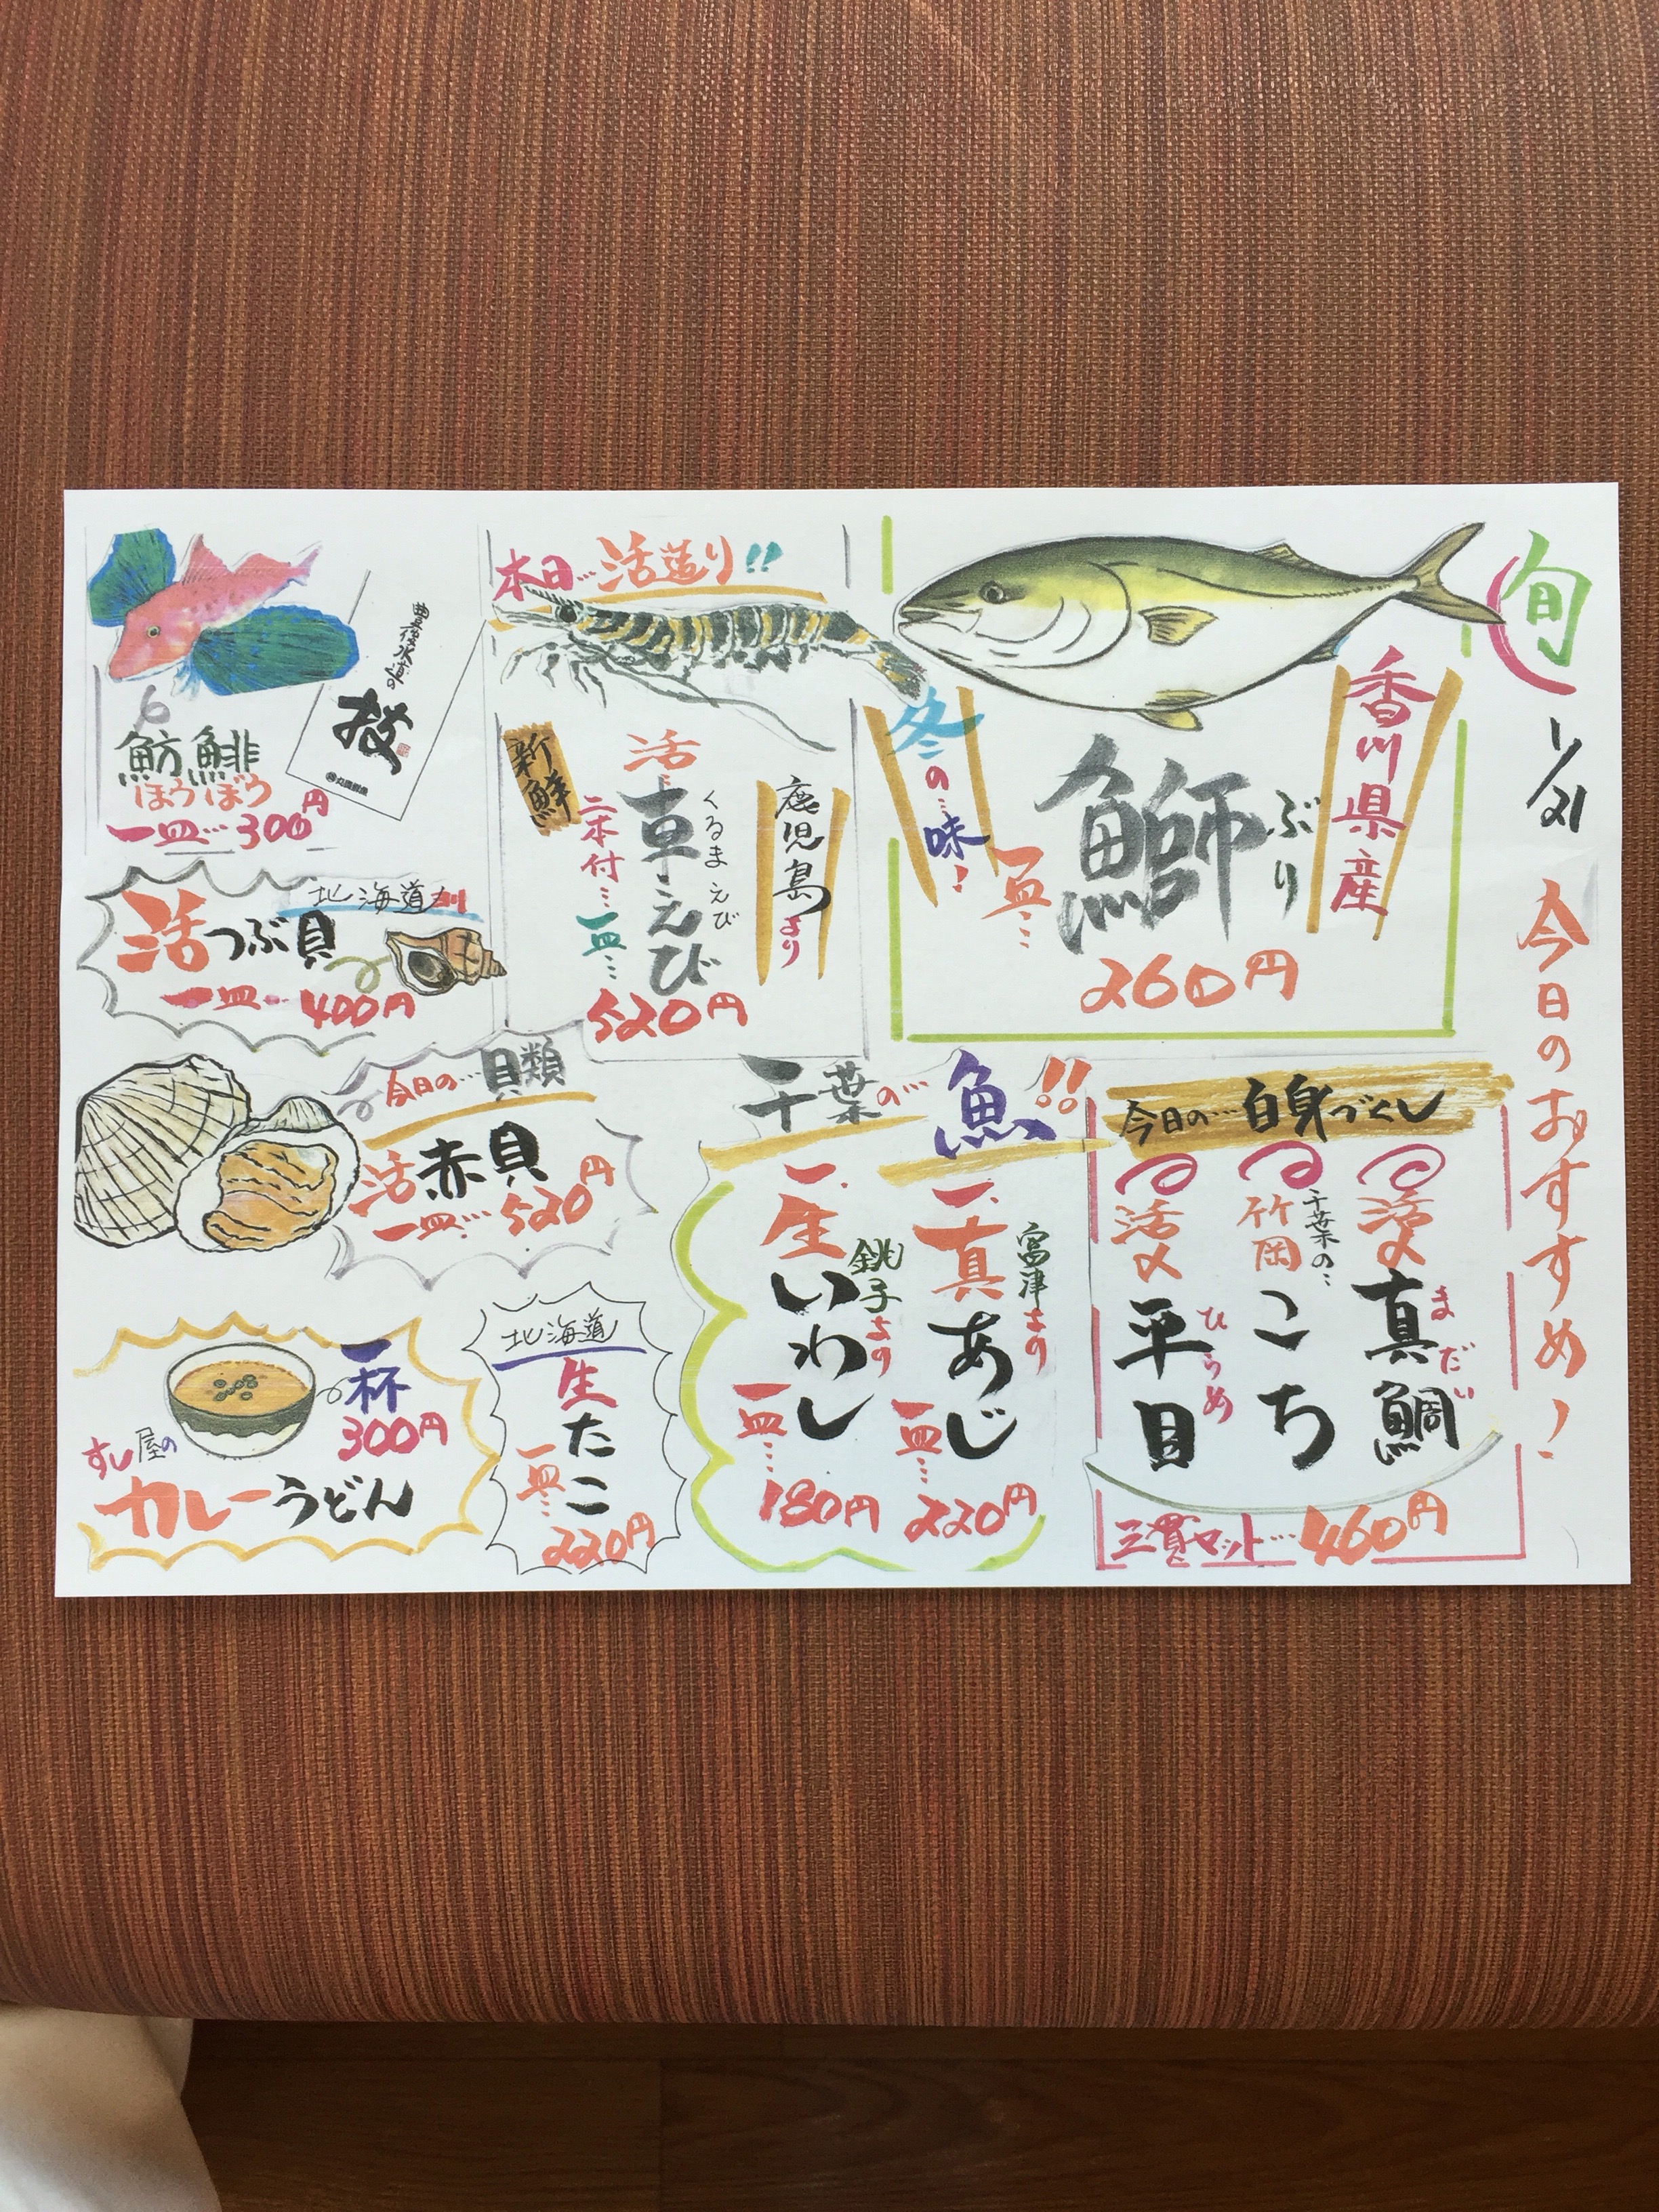 旬
1/21
今日のおすすめ!
香川県産
ぶり
鰤
冬の…味!
一皿…
260円
本日…活造り!!
鹿児島より
くるまえび
活車えび
新鮮
二本付…一皿…
520円
豊後水道の
魴鮄
ほうぼう
一皿…300円
北海道
活つぶ貝
一皿…400円
今日の…貝類
活赤貝
一皿…520円
今日の…白身づくし
活〆真鯛
まだい
千葉の…
竹岡こち
活〆平目
ひらめ
三貫セット…460円
千葉の…魚!!
富津きの
一、真あじ
一皿…220円
銚子きの
一、生いわし
一皿…180円
北海道
生たこ
一皿…
220円
一杯
300円
すし屋の
カレーうどん